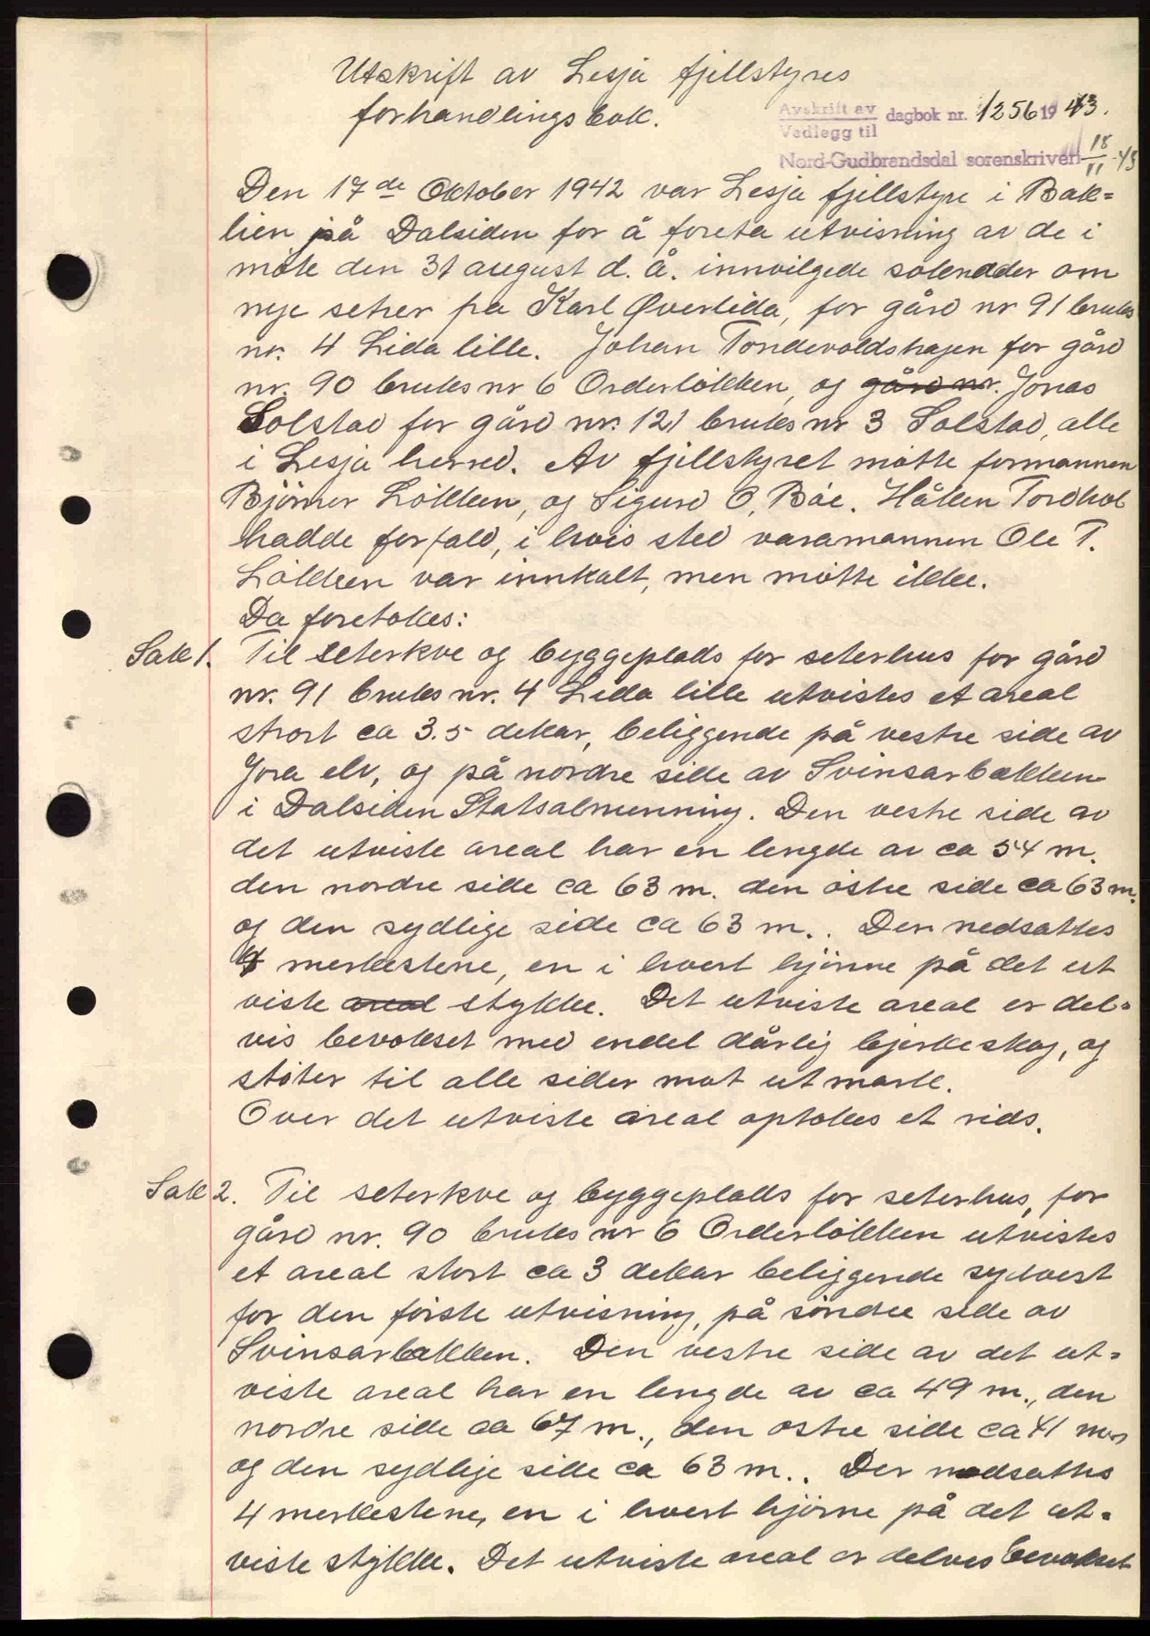 Utskrift av Lesja fjellstyres
forhandlingsbok.
Avskrift av
Vedlegg til dagbok nr. 1256 1943.
Nord-Gudbrandsdal sorenskriveri 18/11-43
Den 17de Oktober 1942 var Lesja fjellstyre i Bak=
lien på Dalsiden for å foreta utvisning av de i
møte den 31 august d. å. innvilgede søknader om
nye setrer fra Karl Øverlida, for gård nr 91 bruks
nr. 4 Lida lille. Johan Tondevoldshagen for gård
nr. 90 bruks nr 6 Orderløkken, og gård nr. Jonas
Solstad for gård nr. 121 bruks nr 3 Solstad, alle
i Lesja herred. Av fjellstyret møtte formannen
Bjørner Løkken, og Sigurd O. Bøe. Håken Tordhol
hadde forfald, i hvis sted varamannen Ole T.
Løkken var innkalt, men møtte ikke.
Da foretokes:
Sak 1. Til seterkve og byggeplads for seterhus for gård
nr. 91 bruks nr. 4 Lida lille utvistes et areal
stort ca 3.5 dekar, beliggende på vestre side av
Jora elv, og på nordre side av Svinsarbækken
i Dalsiden Statsalmenning. Den vestre side av
det utviste areal har en lengde av ca 54 m.
den nordre side ca 63 m. den østre side ca 63 m.
og den sydlige side ca 63 m.. Der nedsattes
4 merkestene, en i hvert hjørne på det ut
viste areal stykke. Det utviste areal er del=
vis bevokset med endel dårlig bjerkeskog, og
støter til alle sider mot utmark.
Over det utviste areal optokes et rids.
Sak 2. Til seterkve og byggeplads for seterhus, for
gård nr. 90 bruks nr 6 Orderløkken utvistes
et areal stort ca 3 dekar beliggende sydvest
for den første utvisning, på søndre side av
Svinsarbækken. Den vestre side av det ut=
viste areal har en lengde av ca 49 m., den
nordre side ca 67 m., den østre side ca 41 m.
og den sydlige side ca 63 m.. Der nedsattes
4 merkestene, en i hvert hjørne på det ut=
viste stykke. Det utviste areal er delvis bevokset